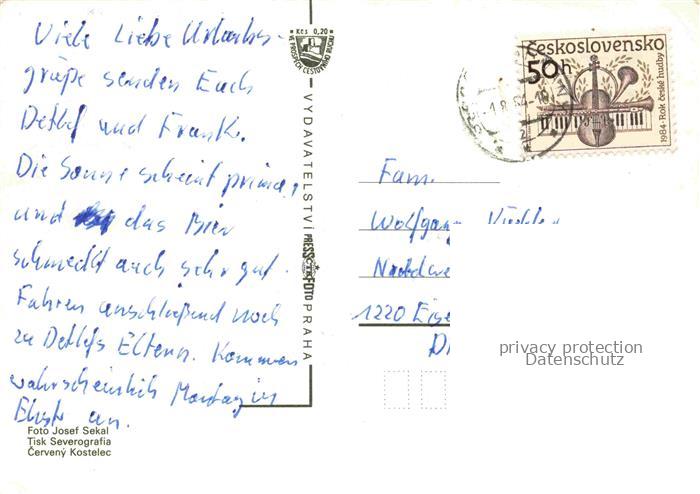 Viele liebe Urlaubs-
grüße senden Euch
Detlef und Frank.
Die Sonne scheint prima,
und das Bier
schmeckt auch sehr gut.
Fahren anschließend noch
zu Detlefs Eltern. Kommen
wahrscheinlich Montag in
an.
Foto Josef Sekal
Tisk Severografia
Červený Kostelec
Kčs 0,20
VE PROSPĚCH CESTOVNÍHO RUCHU
VYDAVATELSTVÍ PRESSFOTO PRAHA
Československo
50h
1984 · Rok české hudby
Fam.
Wolfgang
1220
privacy protection
Datenschutz